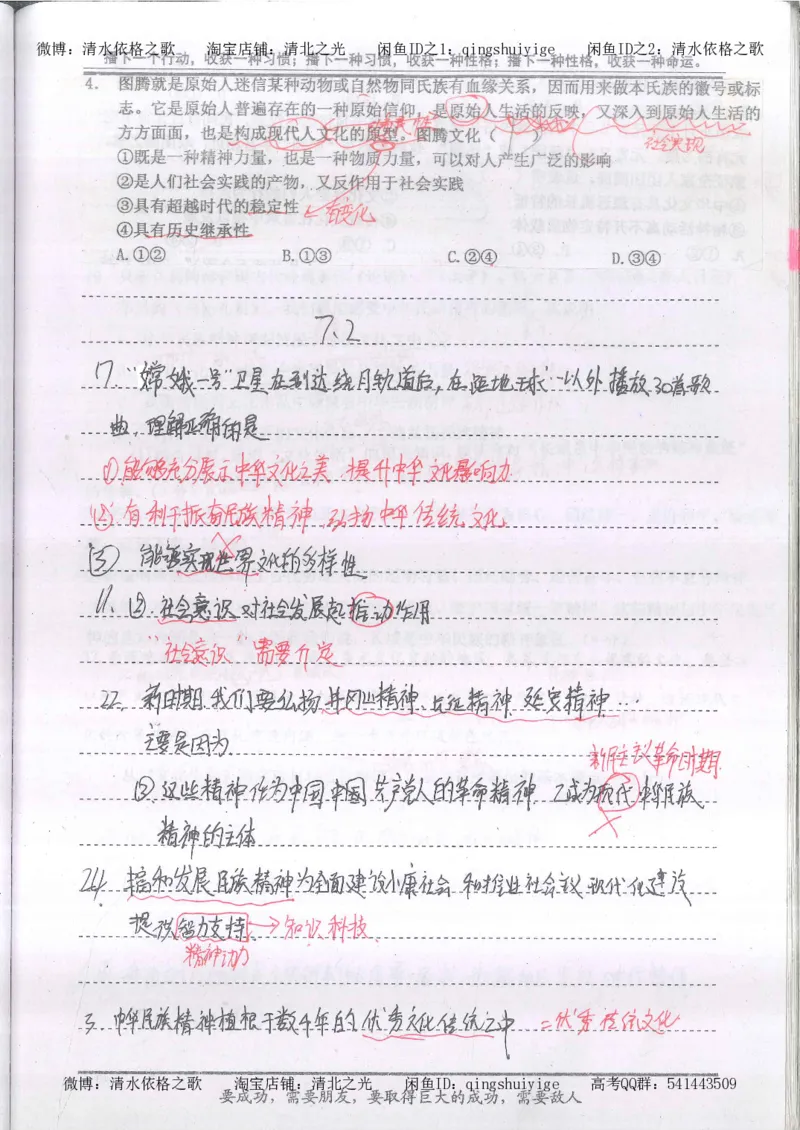 微博：清水依格之歌 淘宝店铺：清北之光 闲鱼ID之1：qingshuiyige 闲鱼ID之2：清水依格之歌
播下一个行动，收获一种习惯；播下一种习惯，收获一种性格；播下一种性格，收获一种命运。
4. 图腾就是原始人迷信某种动物或自然物同氏族有血缘关系，因而用来做本氏族的徽号或标
志。它是原始人普遍存在的一种原始信仰，是原始人生活的反映，又深入到原始人生活的
方方面面，也是构成现代人文化的原型。图腾文化（ ）
社会发现
①既是一种精神力量，也是一种物质力量，可以对人产生广泛的影响
②是人们社会实践的产物，又反作用于社会实践
③具有超越时代的稳定性 ← 有变化
④具有历史继承性
A.①② B.①③ C.②④ D.③④
7.2
17. "嫦娥一号"卫星在到达绕月轨道后，在距地球…以外播放30首歌
曲，理解正确的是
①能够充分展示中华文化之美 提升中华文化影响力
② 有利于振奋民族精神，弘扬中华传统文化
③ 能够实现世界文化的多样性
11. ② 社会意识对社会发展起推动作用
"社会意识"需要介定
22. 新时期我们要弘扬井冈山精神、长征精神、延安精神…
主要是因为
新民主主义革命时期
② 这些精神作为中国中国共产党人的革命精神 已成为现代中华民族
精神的主体
24. 搞和发展民族精神为全面建设小康社会和推进社会主义现代化建设
提供智力支持 → 知识 科技
精神动力
3. 中华民族精神植根于数千年的优秀文化传统之中 = 优秀传统文化
微博：清水依格之歌 淘宝店铺：清北之光 闲鱼ID：qingshuiyige 高考QQ群：541443509
要成功，需要朋友，要取得巨大的成功，需要敌人